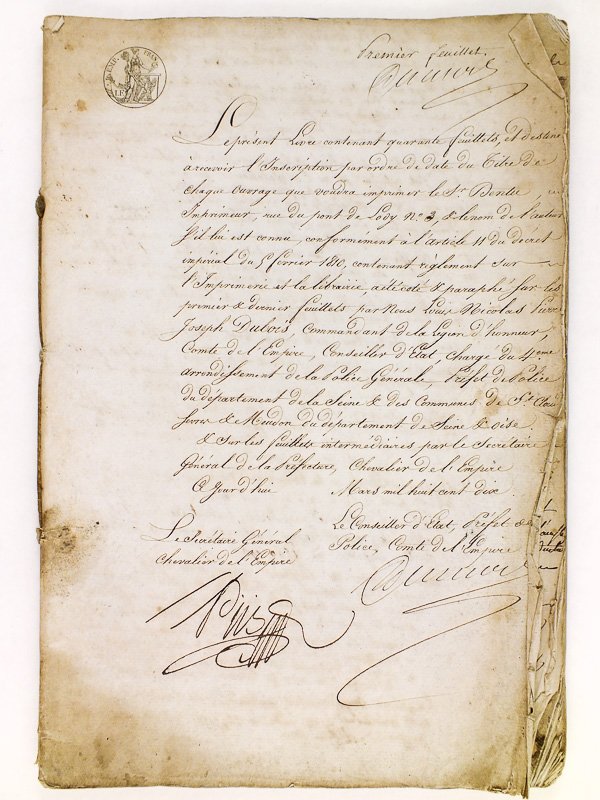 Premier feuillet.
Dubois
Le présent Livre contenant quarante feuillets, et destiné
à recevoir l'Inscription par ordre de date du Titre de
chaque Ouvrage que voudra imprimer le Sr.
Imprimeur, rue du pont de Lody No. 3, & le nom de l'auteur
s'il lui est connu, conformément à l'article 11 du décret
impérial du 5 février 1810, contenant règlement sur
l'Imprimerie et la librairie, a été coté & paraphé sur les
premier & dernier feuillets par Nous Louis Nicolas Pierre
Joseph Dubois, Commandant de la Légion d'honneur,
Comte de l'Empire, Conseiller d'Etat, chargé du 4eme
arrondissement de la Police Générale, Préfet de Police
du département de la Seine & des Communes de St. Cloud
Sevres & Meudon du département de Seine & Oise,
& sur les feuillets intermédiaires par le Secrétaire
Général de la Préfecture, Chevalier de l'Empire
Ce Jourd'hui Mars mil huit cent dix.
Le Secrétaire Général
Chevalier de l'Empire
Piis
Le Conseiller d'Etat, Préfet de
Police, Comte de l'Empire
Dubois